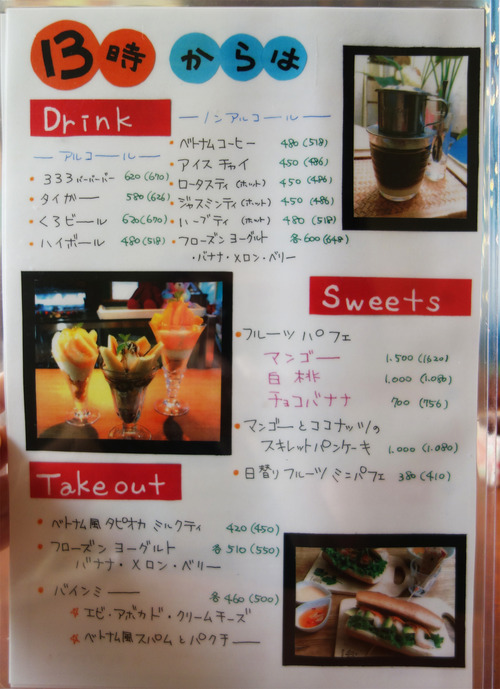 13時からは
Drink
ーアルコールー
・333バーバーバー 620(670)
・タイガー 580(626)
・くろビール 620(670)
・ハイボール 480(518)
ーノンアルコールー
・ベトナムコーヒー 480(518)
・アイスチャイ 450(486)
・ロータスティ(ホット) 450(486)
・ジャスミンティ(ホット) 450(486)
・ハーブティ(ホット) 480(518)
・フローズンヨーグルト 各600(648)
・バナナ・メロン・ベリー
Sweets
・フルーツパフェ
マンゴー 1.500(1620)
白桃 1.000(1.080)
チョコバナナ 700(756)
・マンゴーとココナッツの
スキレットパンケーキ 1.000(1.080)
・日替りフルーツミニパフェ 380(410)
Takeout
・ベトナム風タピオカミルクティ 420(450)
・フローズンヨーグルト 各510(550)
バナナ・メロン・ベリー
・バインミー 各460(500)
☆エビ・アボカド・クリームチーズ
☆ベトナム風スパムとパクチー